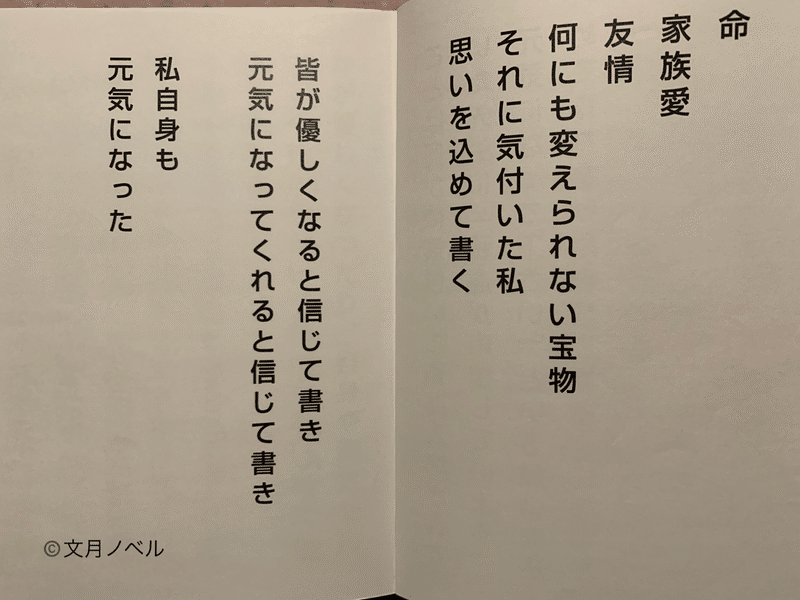 命
家族愛
友情
何にも変えられない宝物
それに気付いた私
思いを込めて書く
皆が優しくなると信じて書き
元気になってくれると信じて書き
私自身も
元気になった
©文月ノベル